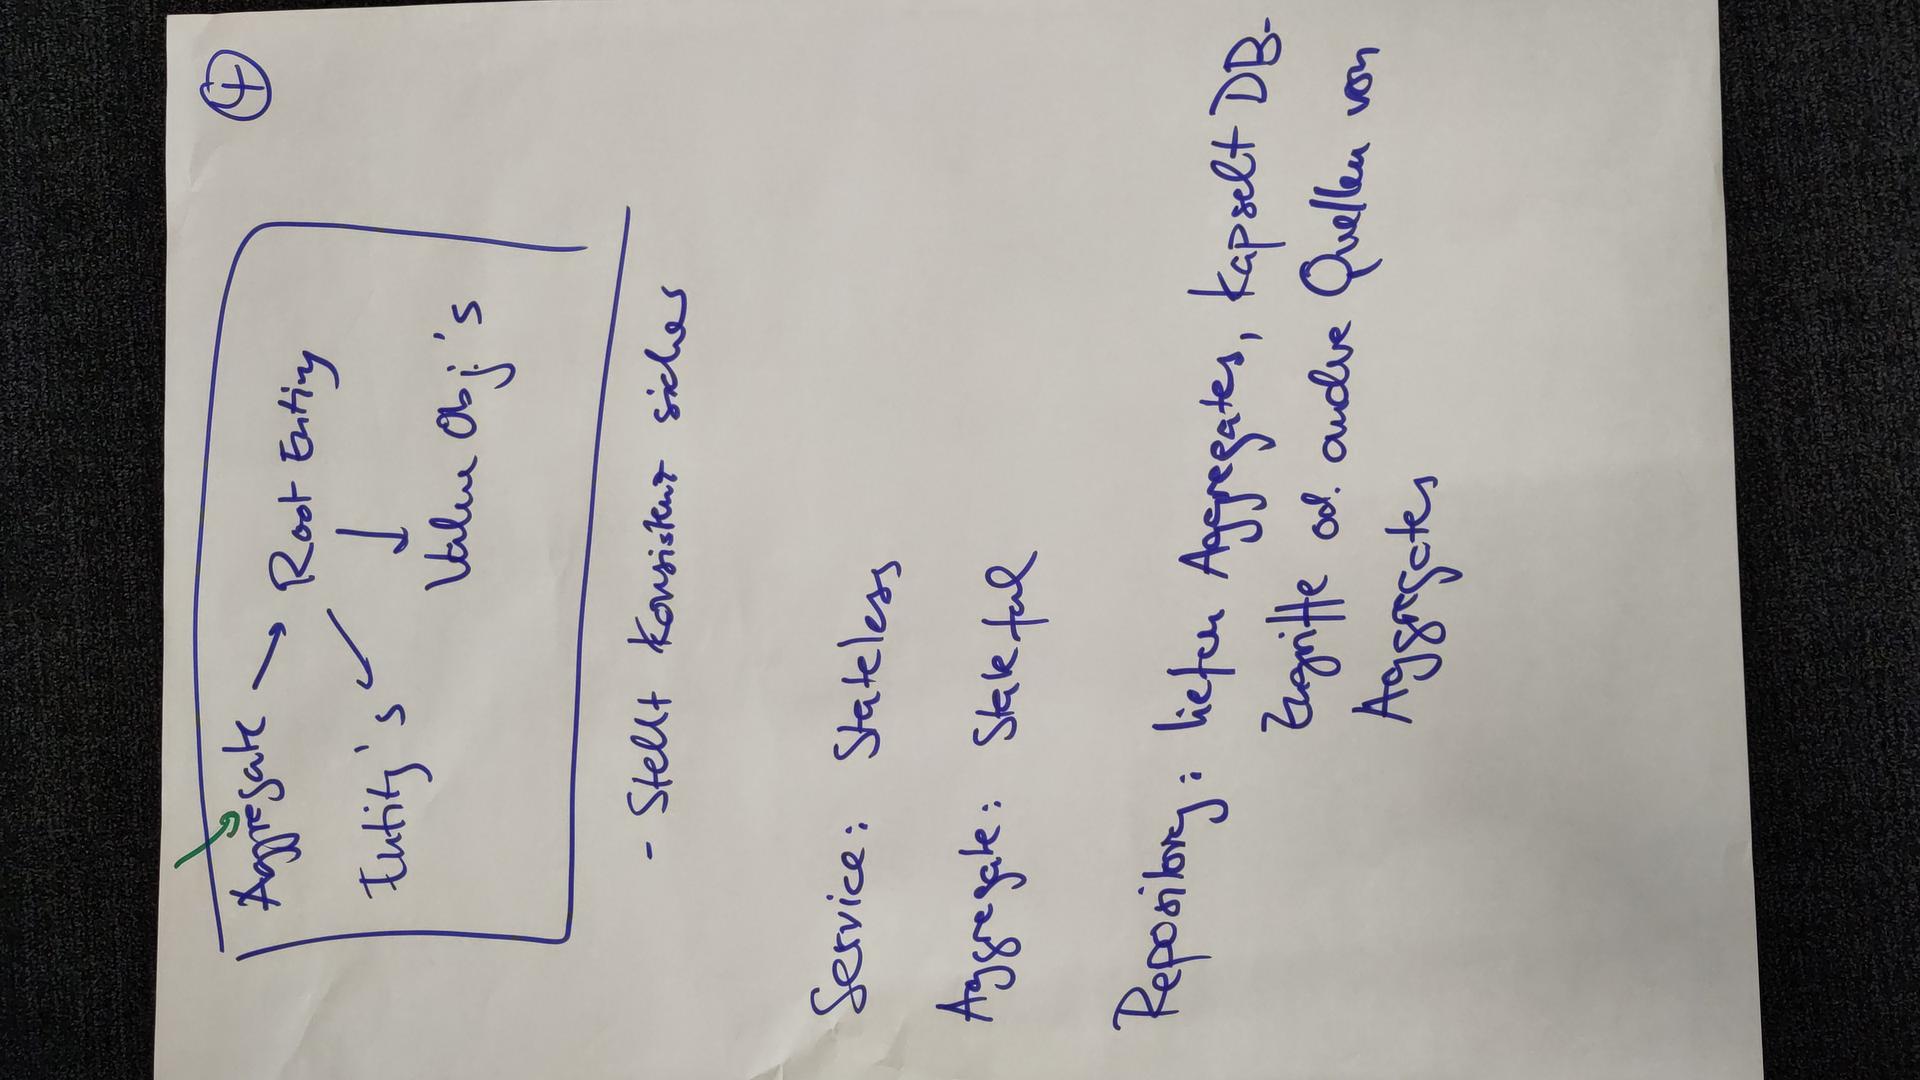 4
Aggregate
Root Entity
Entity's
Value Obj's
- Stellt Konsistenz sicher
Service: Stateless
Aggregate: Stateful
Repository: liefern Aggregates, kapselt DB-
Zugriffe od. andere Quellen von
Aggregates